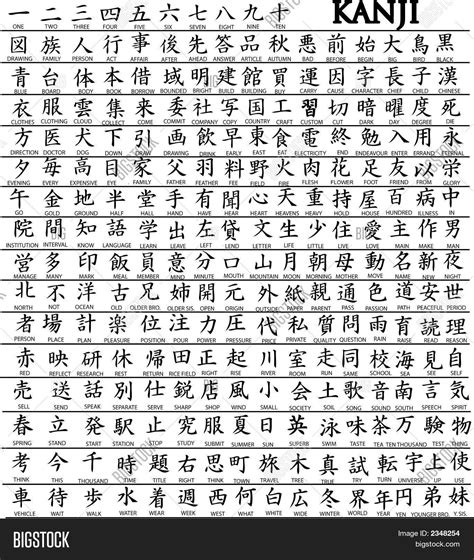 一 二 三 四 五 六 七 八 九 十 KANJI
ONE TWO THREE FOUR FIVE SIX SEVEN EIGHT NINE TEN
図 族 人 行 事 後 先 答 品 秋 悪 前 始 大 鳥 黒
DRAWING FAMILY PERSON ACT AFFAIR AFTER AHEAD ANSWER ARTICLE AUTUMN BAD BEFORE BEGIN BIG BIRD BLACK
青 台 体 本 借 域 明 建 館 買 運 因 字 長 子 漢
BLUE BOARD BODY BOOK BORROW BOUNDED BRIGHT BUILD BUILDING BUY CARRY CAUSE CHARACTER CHIEF CHILD CHINESE
衣 服 雲 集 来 委 社 写 国 工 習 切 暗 曜 度 死
CLOTHES CLOTHING CLOUD COLLECT COME COMMIT COMPANY COPY COUNTRY CRAFT CUSTOM CUT DARK DAY DEGREE DIE
方 医 犬 下 引 画 飲 早 東 食 電 終 勉 入 用 永
DIRECTION DOCTOR DOG DOWN DRAW DRAWING DRINK EARLY EAST EAT ELECTRICITY END ENDEAVOUR ENTER ERRAND
夕 毎 高 目 家 父 羽 料 野 火 肉 花 足 友 以
EVENING EVERY EXPENSIVE EYE FAMILY FATHER FEATHER FEE FIELD FIRE FLESH FLOWER FOOT FRIEND
午 金 地 半 堂 手 有 聞 心 天 重 持 屋 百 病 中
GO GOLD GROUND HALF HALL HAND HAVE HEAR HEART HEAVENS HEAVY HOLD HOUSE HUNDRED ILLNESS IN
院 間 知 語 学 出 左 文 生 少 住 愛 主 作 男
INSTITUTION INTERVAL KNOW LANGUAGE LEARN LEAVE LEFT LETTER LIFE LITTLE LIVE LOVE MAIN MAKE MAN
営 多 印 飯 員 意 分 口 月 山 朝 母 動 名 新 夜
MANAGE MANY MARK MEAL MEMBER MIND MINUTE MOUTH MOON MORNING MOTHER MOVE NAME NEW NIGHT
北 不 洋 古 兄 姉 開 元 外 親 通 色 道 安 世
NORTH NOT OCEAN OLD OLDER BRO. OLDER SIS. OPEN ORIGIN OUTSIDE PARENT PASS PATHWAY PEACEFUL PERIOD
者 場 計 楽 位 注 力 圧 代 私 質 問 雨 育 読 理
PERSON PLACE PLAN PLEASURE POSITION POUR POWER PRESSURE PRICE PRIVATE QUALITY QUESTION RAIN RAISE READ REASON
赤 映 研 休 帰 田 正 起 川 室 走 同 校 海 見 自
RED REFLECT RESEARCH REST RETURN RICE FIELD RIGHT RISE RIVER ROOM RUN SAME SCHOOL SEA SEE SELF
売 送 話 別 仕 鋭 店 風 小 会 土 歌 音 南 言 気
SELL SEND SPEAK SEPARATE SERVE SHARP SHOP SMALL SOCIETY SOIL SONG SOUND SOUTH SPEECH SPIRIT
春 立 発 駅 止 究 服 夏 日 英 泳 味 茶 万 験 物
SPRING STAND START STATION STOP STUDY SUBMIT SUMMER SUN SUPERB SWIM TASTE TEA TEN THOUSAND TEST THING
考 今 千 時 題 右 思 町 旅 木 真 試 二 回 上
THINK THIS THOUSAND TIME TITLE RIGHT THINK TOWN TRAVEL TREE TRUE TRY TWO TURN UP
車 待 歩 水 着 週 西 何 白 広 冬 世界 年 円 弟 妹
VEHICLE WAIT WALK WATER WEAR WEEK WEST WHAT WHITE WIDE WINTER WORLD YEAR YEN YOUNGER BRO. Y. SIS.
BIGSTOCK
Image ID: 2348254
bigstock.com